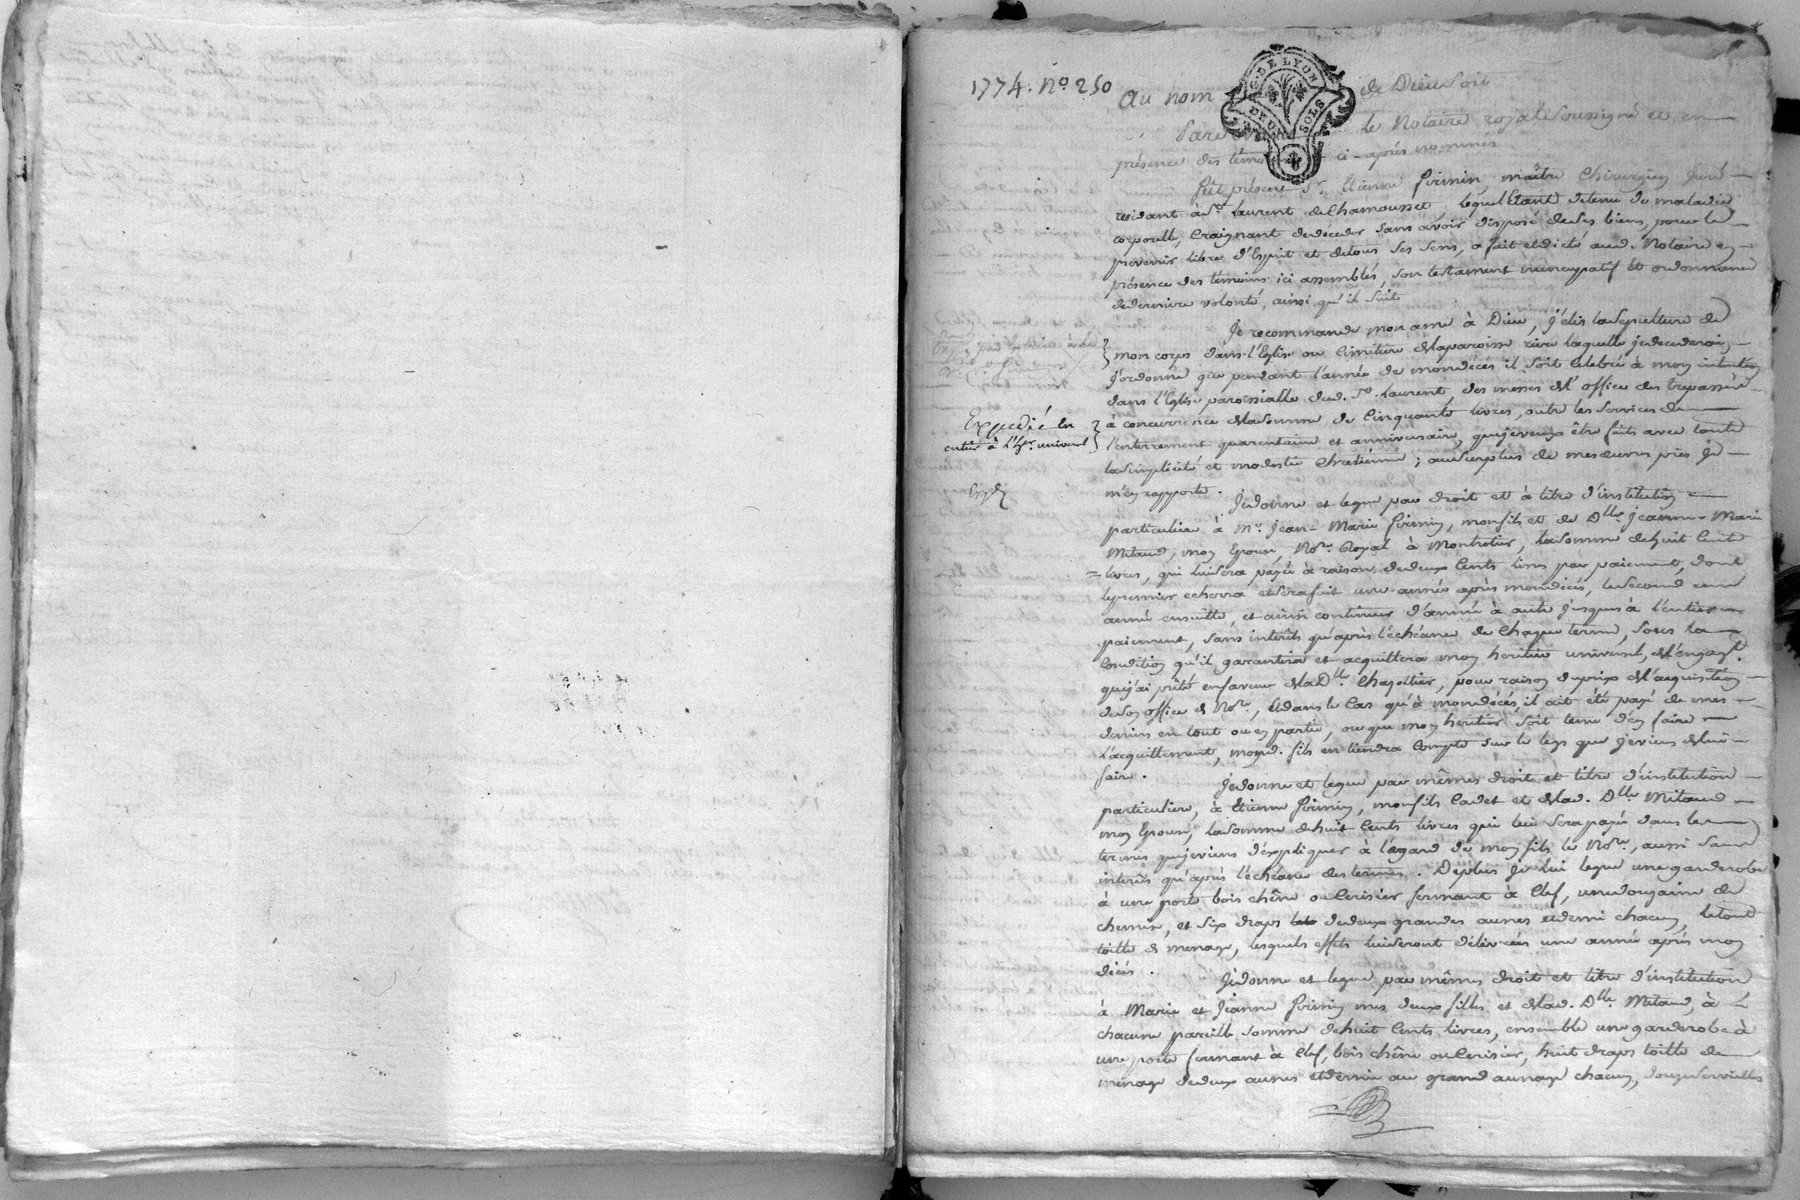 1774. n.º 250
G. DE LYON
DEUX SOLS
Au nom de Dieu soit
Pardevant le Notaire royal soussigné et en
présence des témoins ci-après nommés.
fut présent Sr. Etienne firmin, maître Chirurgien Juré
residant à St. Laurent de Chamousset lequel Etant detenu de maladie
corporelle, Craignant dedeceder sans avoir disposé deses biens, pour le
prevenir libre d'Esprit et detous ses sens, a fait et dicté aud. Notaire en
présence des témoins ici assemblés, son testament nuncupatif et ordonnance
dederniere volonté, ainsi qu'il suit
Je recommande mon ame à Dieu, j'élis la sepulture de
mon corps dans l'Eglise ou Cimitiere dela paroisse riere laquelle je decederai,
J'ordonne que pendant l'année de mon décés il soit Celebré à mon intention
dans l'Eglise paroissialle dud. St. Laurent, des messes de l'office des trepassés
Expedié en
à concurrence dela somme de Cinquante livres, outre les services de
entier à l'her. universel
l'enterrement quarantaine et anniversaire, que je veux être faits avec toute
la simplicité et modestie Chretienne; au surplus de mes œuvres pies Je
m'en rapporte.
Je donne et legue par droit et à titre d'institution
particuliere à Mr. Jean-Marie firmin, mon fils et de Dlle Jeanne-Marie
Mitaud, mon Epouse, Nore. Royal à Montrotier, la somme de huit Cent
livres, qui lui sera payée à raison de deux Cents livres par paiement, dont
le premier echerra et sera fait une année après mon décés, le second une
année ensuitte, et ainsi continuer d'année à autre jusques à l'entier
paiement, sans interêts qu'après l'échéance de Chaque terme, sous la
Condition qu'il garantira et acquittera mon heritier universel, de l'engagt.
que j'ai prêté en faveur dela Dlle. Chazottier, pour raison du prix de l'acquisition
de son office de Nore., et dans le Cas qu'à mon décés, il ait été payé de mes
deniers en tout ou en partie, ou que mon heritier soit tenu d'en faire
l'acquittement, mond. fils en tiendra Compte sur le legs que je viens de lui
faire.
Je donne et legue par mêmes droit et titre d'institution
particuliere, à Etienne firmin, mon fils Cadet et de lad. Dlle Mitaud
mon Epouse, la somme de huit Cents livres qui lui sera payée dans les
termes que je viens d'expliquer à l'égard de mon fils le Nore., aussi sans
interêts qu'après l'échéance des termes. Deplus je lui legue une garderobe
à une porte bois chêne ou Cerisier fermant à Clef, une douzaine de
chemise, et six draps de deux grandes aunes et demi chacun, le tout
toille de menage, lesquels effets lui seront délivrés une année après mon
décés.
Je donne et legue par mêmes droit et titre d'institution
à Marie et Jeanne firmin mes deux filles et de lad. Dlle Mitaud, à
chacune pareille somme de huit Cents livres, ensemble une garderobe à
une porte fermant à Clef, bois chêne ou Cerisier, huit draps toille de
ménage de deux aunes et demie au grand aunage chacun, douze serviettes